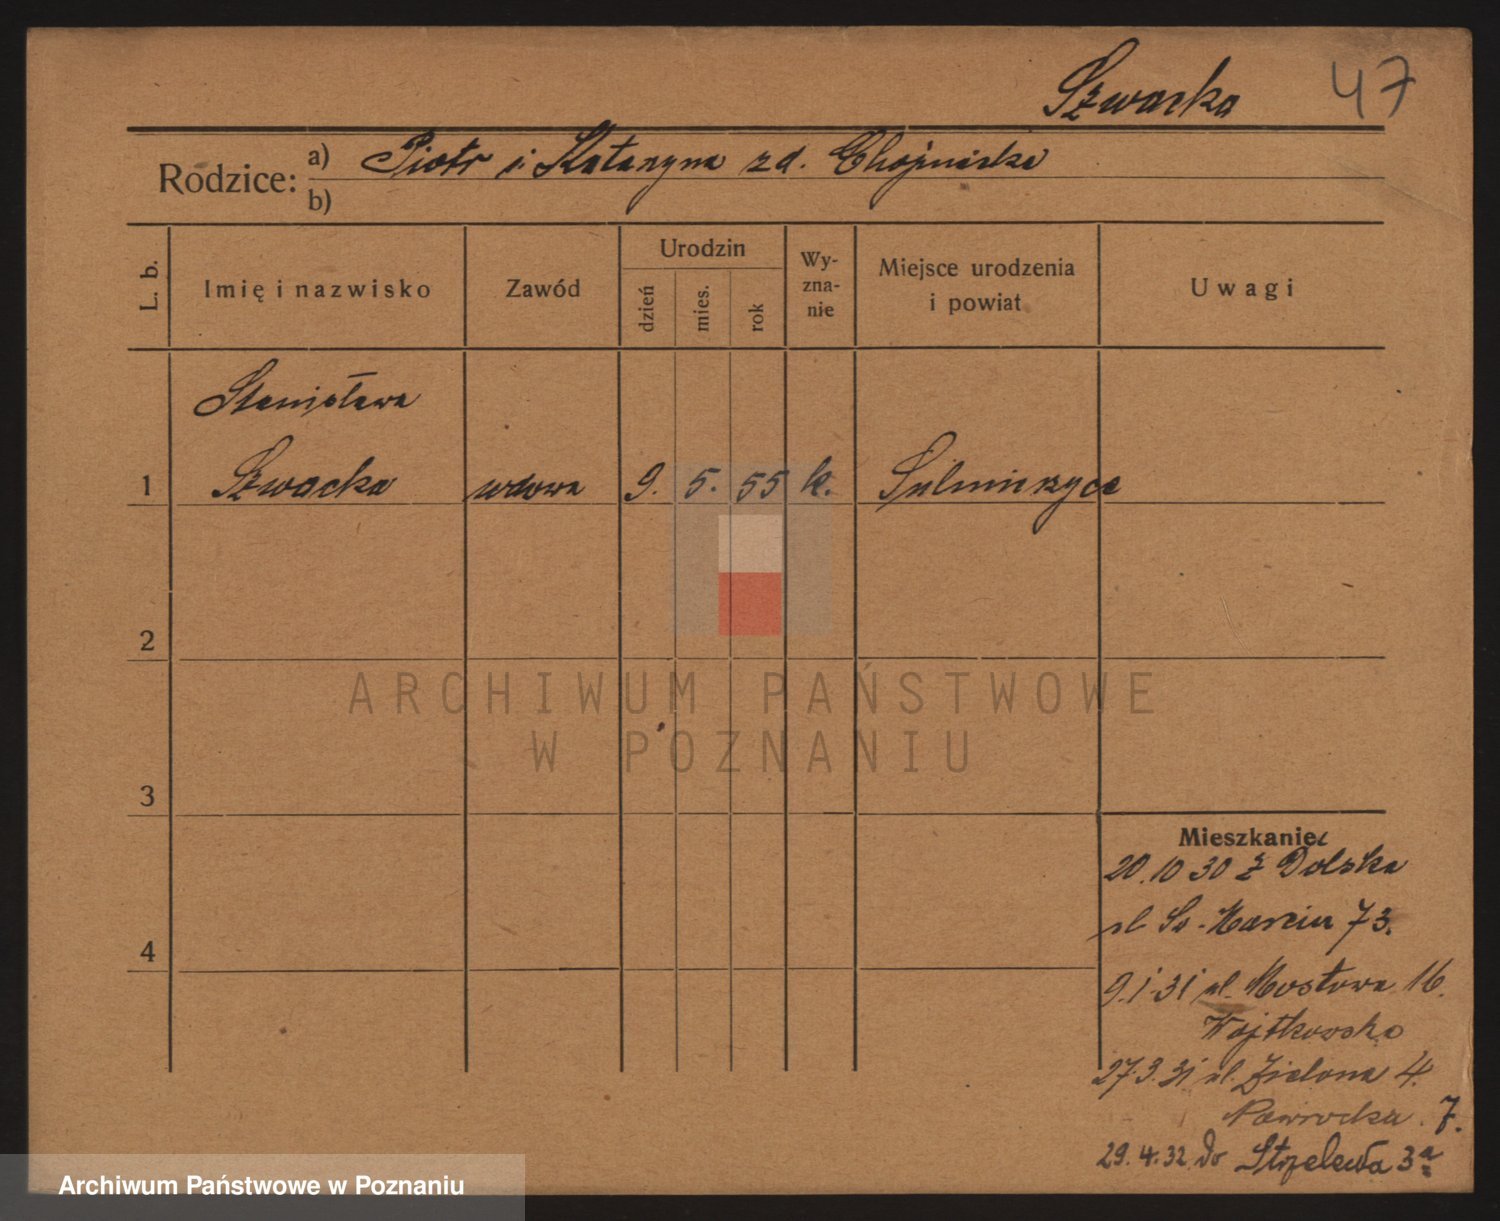 Szwacka 47
Rodzice: a) Piotr i Katarzyna zd. Chojnicka
b)
L. b. Imię i nazwisko Zawód Urodzin dzień mies. rok Wy-zna-nie Miejsce urodzenia i powiat Uwagi
Stanisława
1 Szwacka wdowa 9. 5. 55 k. Sulmierzyce
2
ARCHIWUM PAŃSTWOWE
W POZNANIU
3
Mieszkanie:
20.10 30 z Dolska
4 ul Św. Marcin 73.
9.1.31 ul. Mostowa 16.
Wojtkowska
27.3.31 ul. Zielona 4.
Nawrocka. 7.
29.4.32 do Strzelewa 3a
Archiwum Państwowe w Poznaniu